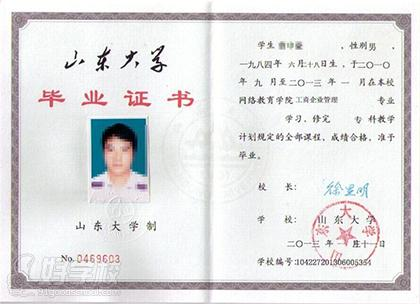 山东大学
毕业证书
山东大学制
No.0469603
学生 ，性别男，
一九八四年六月十八日生，于二〇一〇
年九月至二〇一三年一月在本校
网络教育学院 工商企业管理 专业
学习，修完 专科教学
计划规定的全部课程，成绩合格，准予
毕业。
校长： 徐显明
学校： 山东大学
山东大学
二〇一三年一月十一日
学校编号：104227201306005354